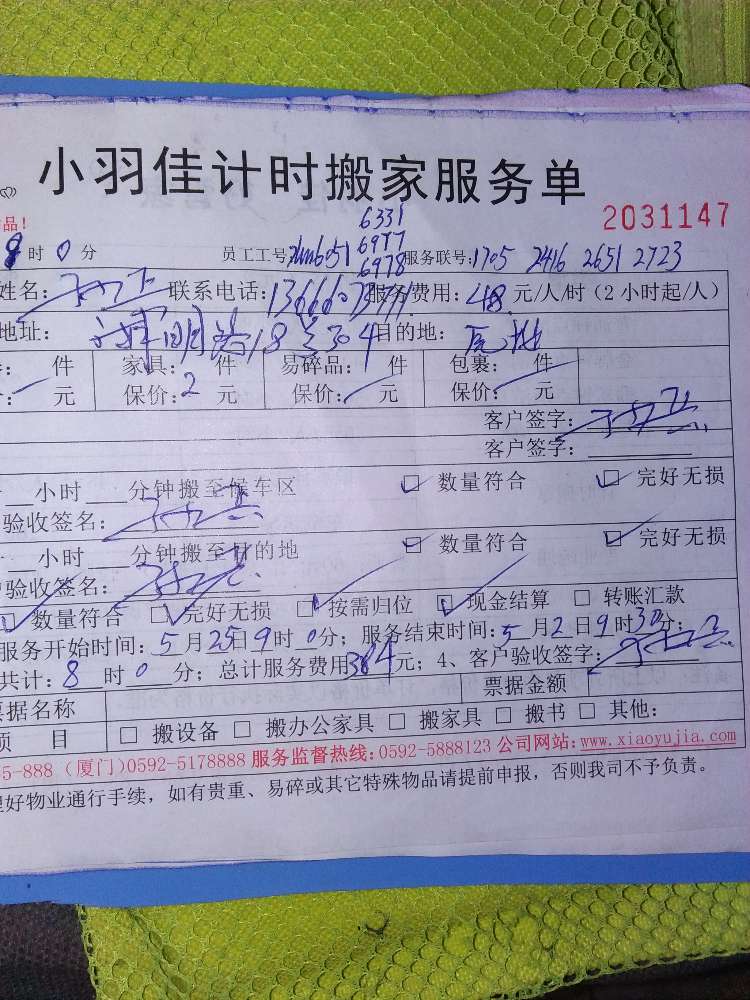 小羽佳计时搬家服务单
品!
2031147
6331
6977
6978
9时0分 员工工号: 6051 服务联号:1705 2416 2651 2723
姓名: 联系电话: 服务费用:48元/人/时(2小时起/人)
地址: 目的地:
件 家具: 件 易碎品: 件 包裹: 件
元 保价:2元 保价: 元 保价: 元
客户签字:
客户签字:
小时 分钟搬至候车区 数量符合 完好无损
验收签名:
小时 分钟搬至目的地 数量符合 完好无损
验收签名:
数量符合 完好无损 按需归位 现金结算 转账汇款
服务开始时间:5月25日9时0分;服务结束时间:5月2日9时30分;
共计:8时0分;总计服务费用384元;4、客户验收签字:
票据名称 票据金额
项目 搬设备 搬办公家具 搬家具 搬书 其他:
5-888(厦门)0592-5178888 服务监督热线:0592-5888123 公司网站:www.xiaoyujia.com
理好物业通行手续,如有贵重、易碎或其它特殊物品请提前申报,否则我司不予负责。